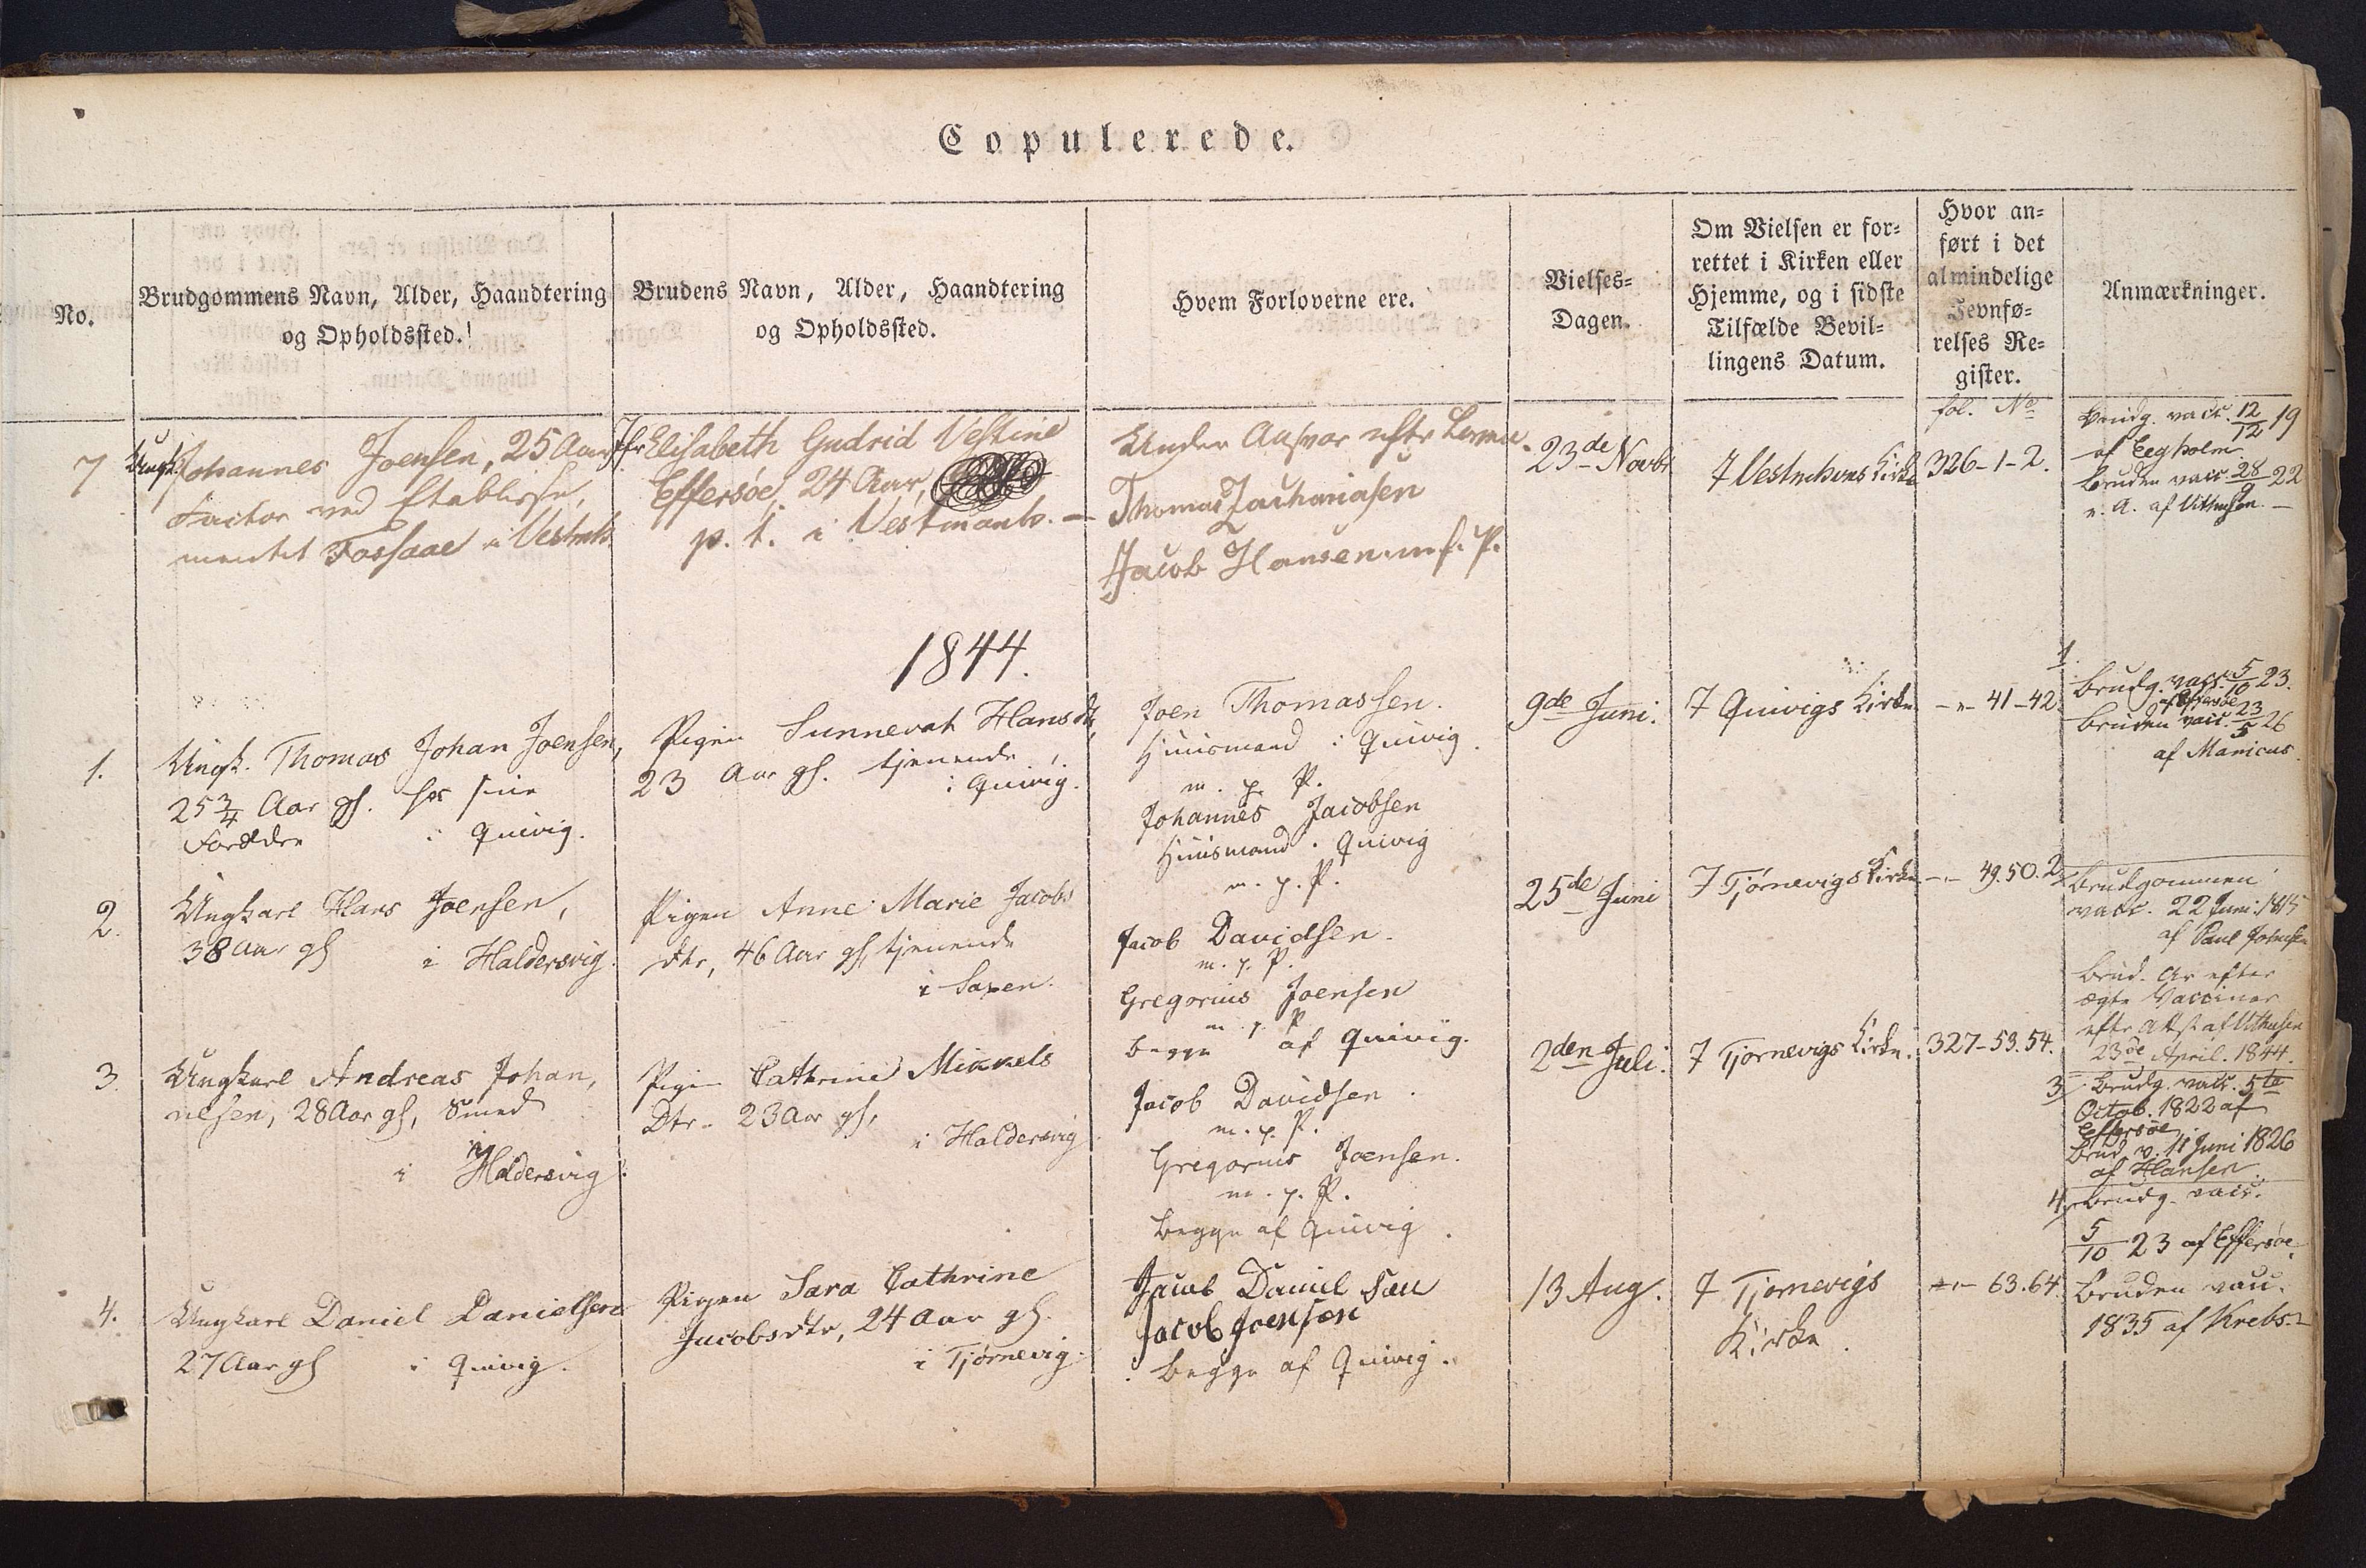 Copulerede.
No.
Brudgommens Navn, Alder, Haandtering
og Opholdssted.
Brudens Navn, Alder, Haandtering
og Opholdssted.
Hvem Forloverne ere.
Vielses-
Dagen.
Om Vielsen er for-
rettet i Kirken eller
Hjemme, og i sidste
Tilfælde Bevil-
lingens Datum.
Hvor an-
ført i det
almindelige
Jevnfø-
relses Re-
gister.
Anmærkninger.
fol. No
7
Ungk. Johannes Joensen, 25 Aar
Factor ved Etablisse-
mentet Fossaae i Vestmh.
Jfr Elisabeth Gudrid Vestine
Effersøe, 24 Aar,
p. t. i Vestmanh. —
Under Ansvar efter Loven.
Thomas Zachariasen
Jacob Hansen m. f. P.
23de Novbr
I Vestmhvns Kirke
326-1-2.
Brudg. vacc. 12/12 19
af Eegholm
Bruden vacc. 28/9 22
af
1844.
1.
Ungk. Thomas Johan Joensen,
25 3/4 Aar gl. hos sine
Forældre i Quivig.
Pigen Sunnevah Hansdtr,
23 Aar gl. tjenende
i Quivig.
Joen Thomassen.
Huusmand i Quivig.
m. p. P.
Johannes Jacobsen
Huusmand i Quivig
m. p. P.
9de Juni.
I Quivigs Kirke
-"- 41-42
1.
Brudg. vacc. 5/10 23.
af Effersøe
Bruden vacc. 23/5 26
af Manicus.
2.
Ungkarl Hans Joensen,
38 Aar gl i Haldersvig.
Pigen Anne Marie Jacobs
dtr, 46 Aar gl, tjenende
i Saxen.
Jacob Davidsen.
m. p. P.
Gregorius Joensen
m. p. P
begge af Quivig.
25de Juni
I Tjørnevigs Kirke
-"- 49.50.
2
Brudgommen
vacc. 22 Juni 1815
af Paul Johnsen
Brud. Ar efter
ægte Vacciner
efter Att. af
23de April. 1844.
3.
Ungkarl Andreas Johan,
nesen, 28 Aar gl, Smed
i Haldersvig.
Pigen Cathrine Mikkels
Dtr. 23 Aar gl,
i Haldersvig
Jacob Davidsen.
m. p. P.
Gregorius Joensen.
m. p. P.
begge af Quivig.
2den Juli.
I Tjørnevigs Kirke.
327-53.54.
3
Brudg. vacc. 5te
Octob. 1822 af
Effersøe
Brud v. 11 Juni 1826
af Hansen.
4.
Ungkarl Daniel Danielsen
27 Aar gl i Quivig.
Pigen Sara Cathrine
Jacobsdtr, 24 Aar gl.
i Tjørnevig.
Jacob Daniel Sen
Jacob Joensen
begge af Quivig.
13 Aug.
I Tjørnevigs
Kirke.
-"- 63.64.
4
Brudg. vacc.
5/10 23 af Effersøe.
Bruden vacc.
1835 af Krebs.